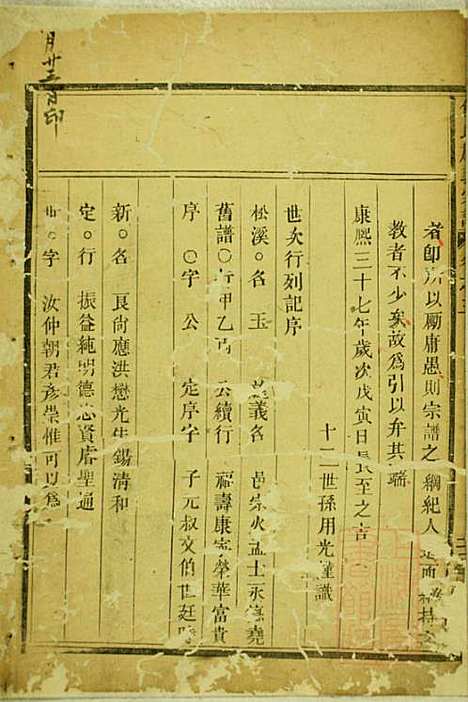 者卽所以勵庸愚則宗譜之綱紀人
教者不少矣故爲引以弁其端
康熙三十七年歲次戊寅日長至之吉
十二世孫用光謹識
世次行列記序
松溪○名 玉 義名 邑宗火孟士永 堯
舊譜○行甲乙丙 公續行 福壽康寧榮華富貴
序 ○字 公 定序字 子元叔文伯世廷
新○名 良尚應洪懋光生錫清和
定○行 振益純明德 資睿聖通
世○字 汝仲朝君彥崇惟可以爲
月廿三日印